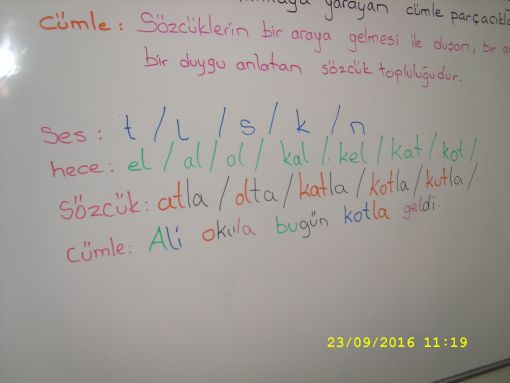 yarayan cümle parçacıkl
Cümle: Sözcüklerin bir araya gelmesi ile oluşan, bir
bir duygu anlatan sözcük topluluğudur.
Ses: t / L / s / k / n
hece: el / al / ol / kal / kel / kat / kol /
Sözcük: atla / olta / katla / kotla / kutla /
Cümle: Ali okula bugün kotla geldi.
23/09/2016 11:19